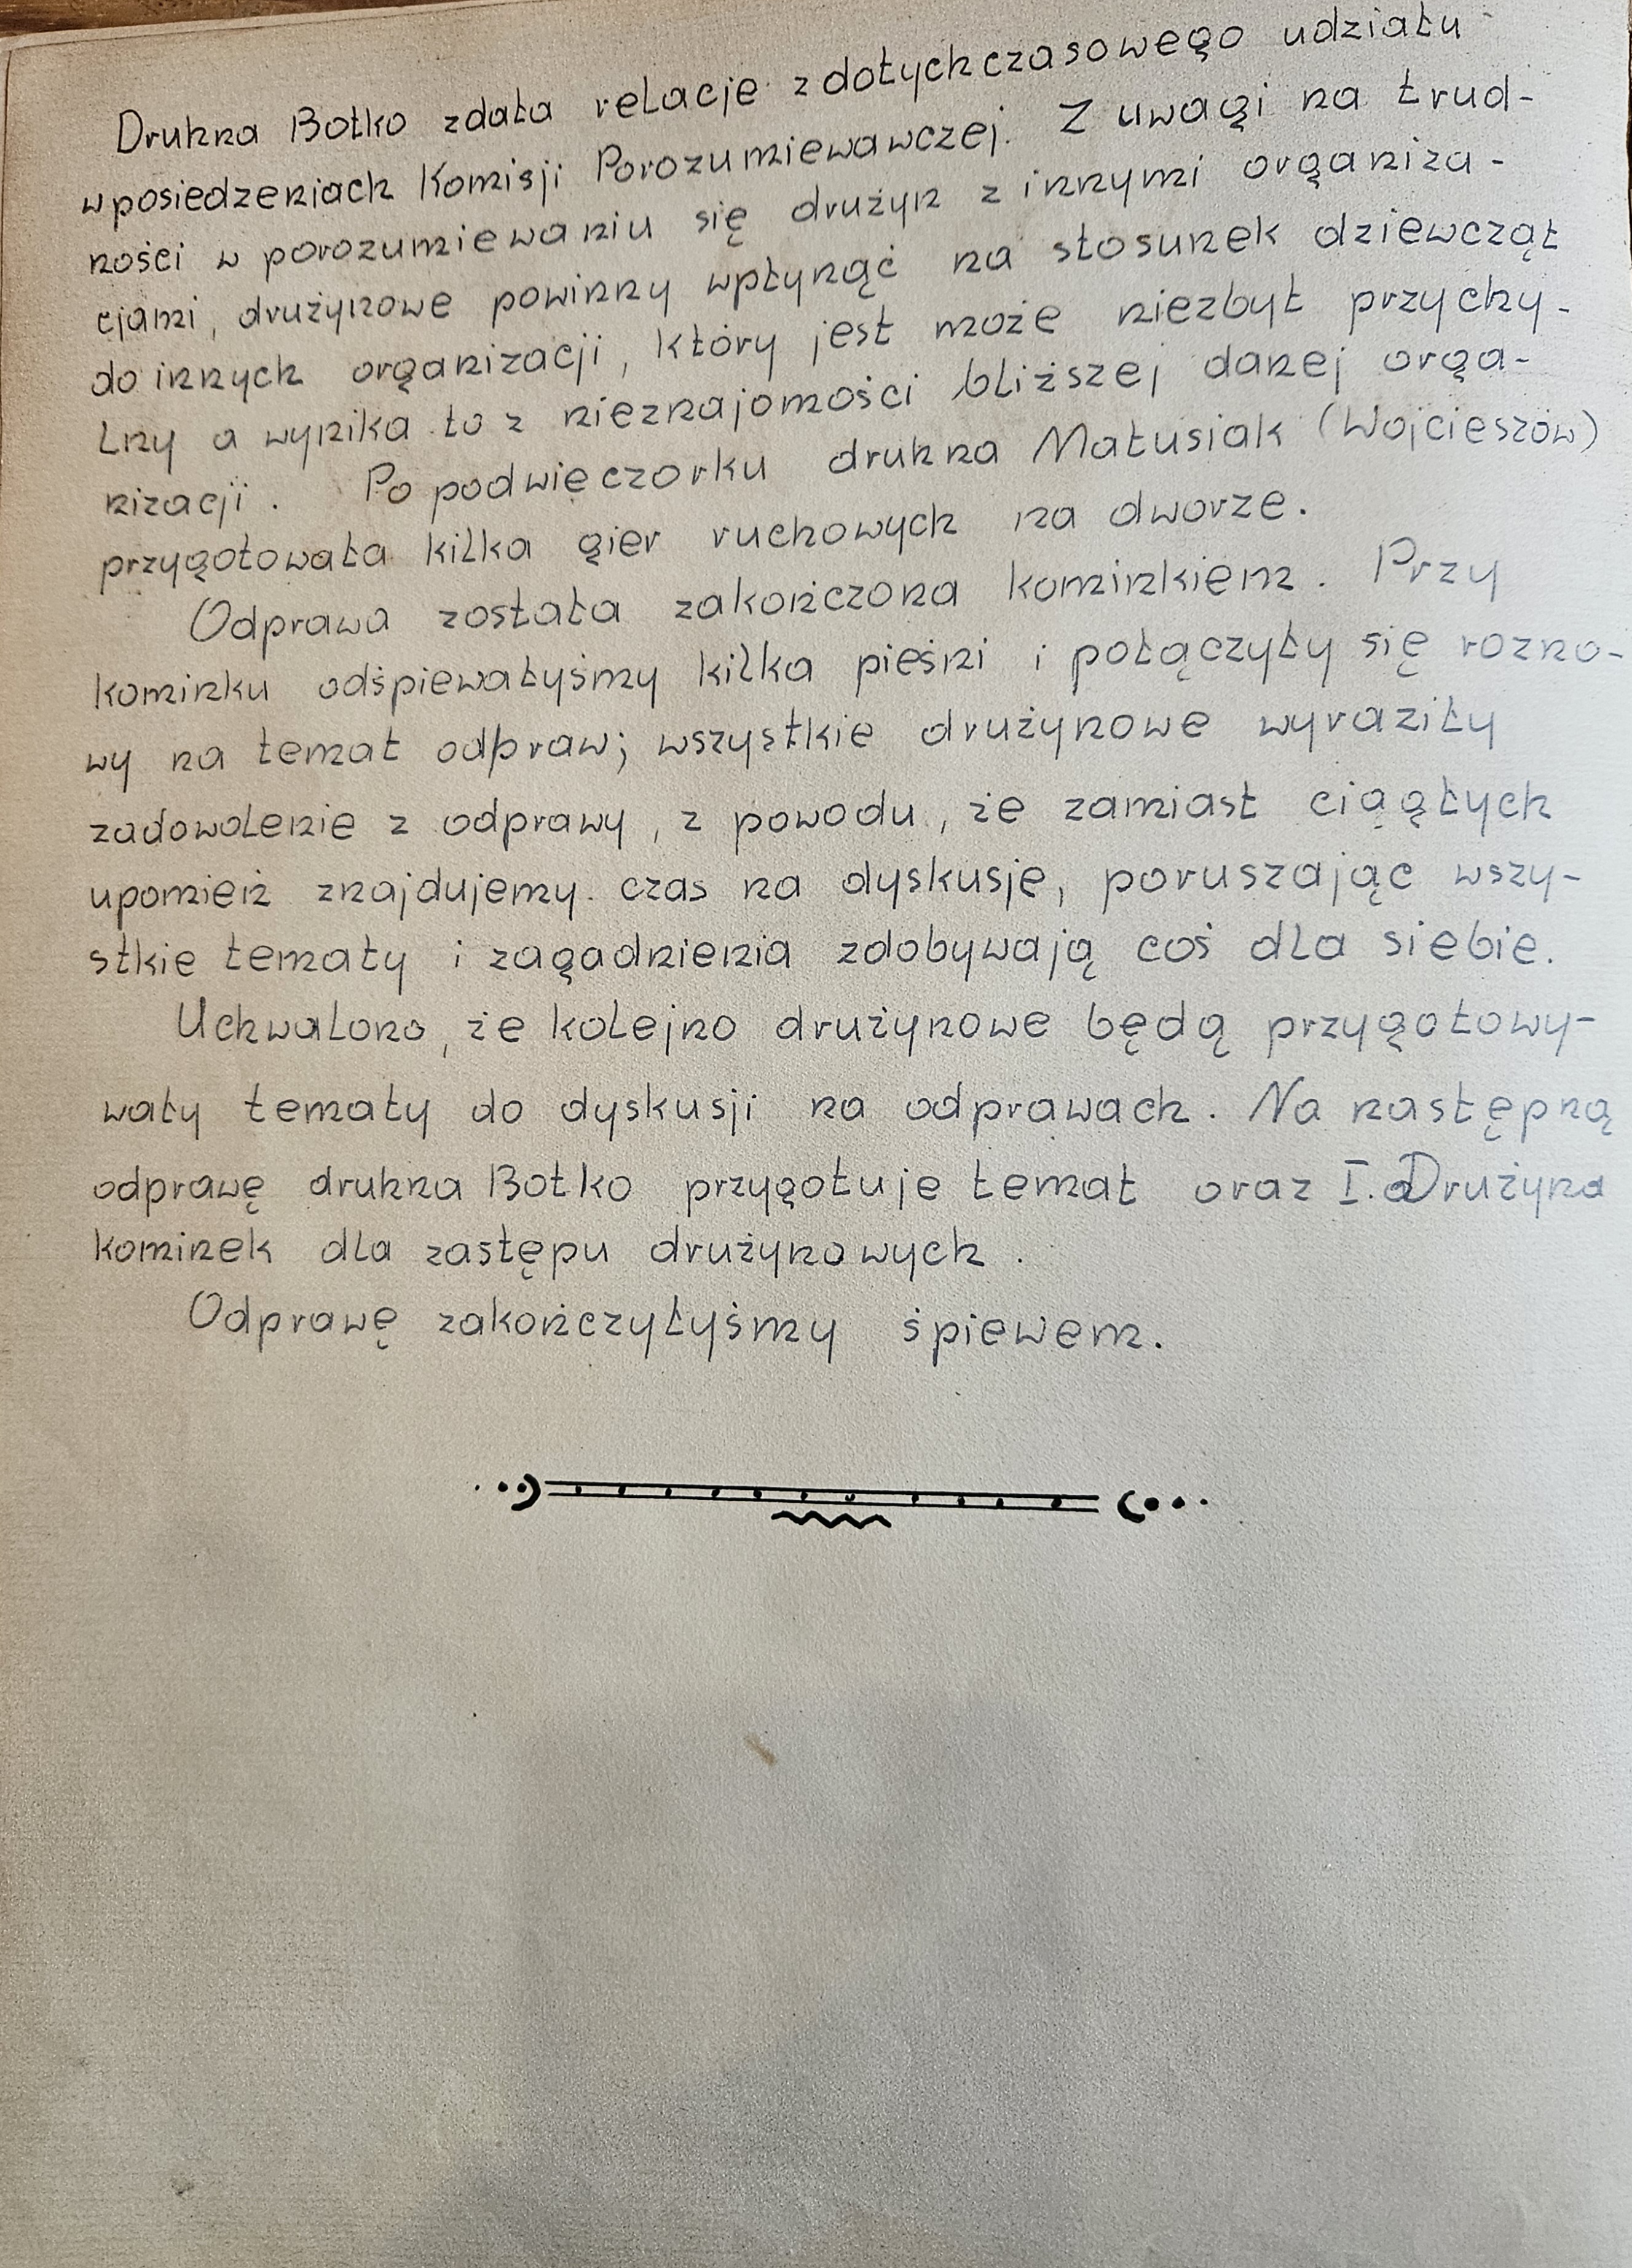 Druhna Botko zdała relacje z dotychczasowego udziału
w posiedzeniach Komisji Porozumiewawczej. Z uwagi na trud-
ności w porozumiewaniu się drużyn z innymi organiza-
cjami, drużynowe powinny wpłynąć na stosunek dziewcząt
do innych organizacji, który jest może niezbyt przychy-
lny a wynika to z nieznajomości bliższej danej orga-
nizacji. Po podwieczorku druhna Matusiak (Wojcieszów)
przygotowała kilka gier ruchowych na dworze.
Odprawa została zakończona kominkiem. Przy
kominku odśpiewałyśmy kilka pieśni i połączyły się rozmo-
wy na temat odpraw; wszystkie drużynowe wyraziły
zadowolenie z odprawy, z powodu, że zamiast ciągłych
upomień znajdujemy czas na dyskusje, poruszając wszy-
stkie tematy i zagadnienia zdobywają coś dla siebie.
Uchwalono, że kolejno drużynowe będą przygotowy-
wały tematy do dyskusji na odprawach. Na następną
odprawę druhna Botko przygotuje temat oraz I. Drużyna
kominek dla zastępu drużynowych.
Odprawę zakończyłyśmy śpiewem.